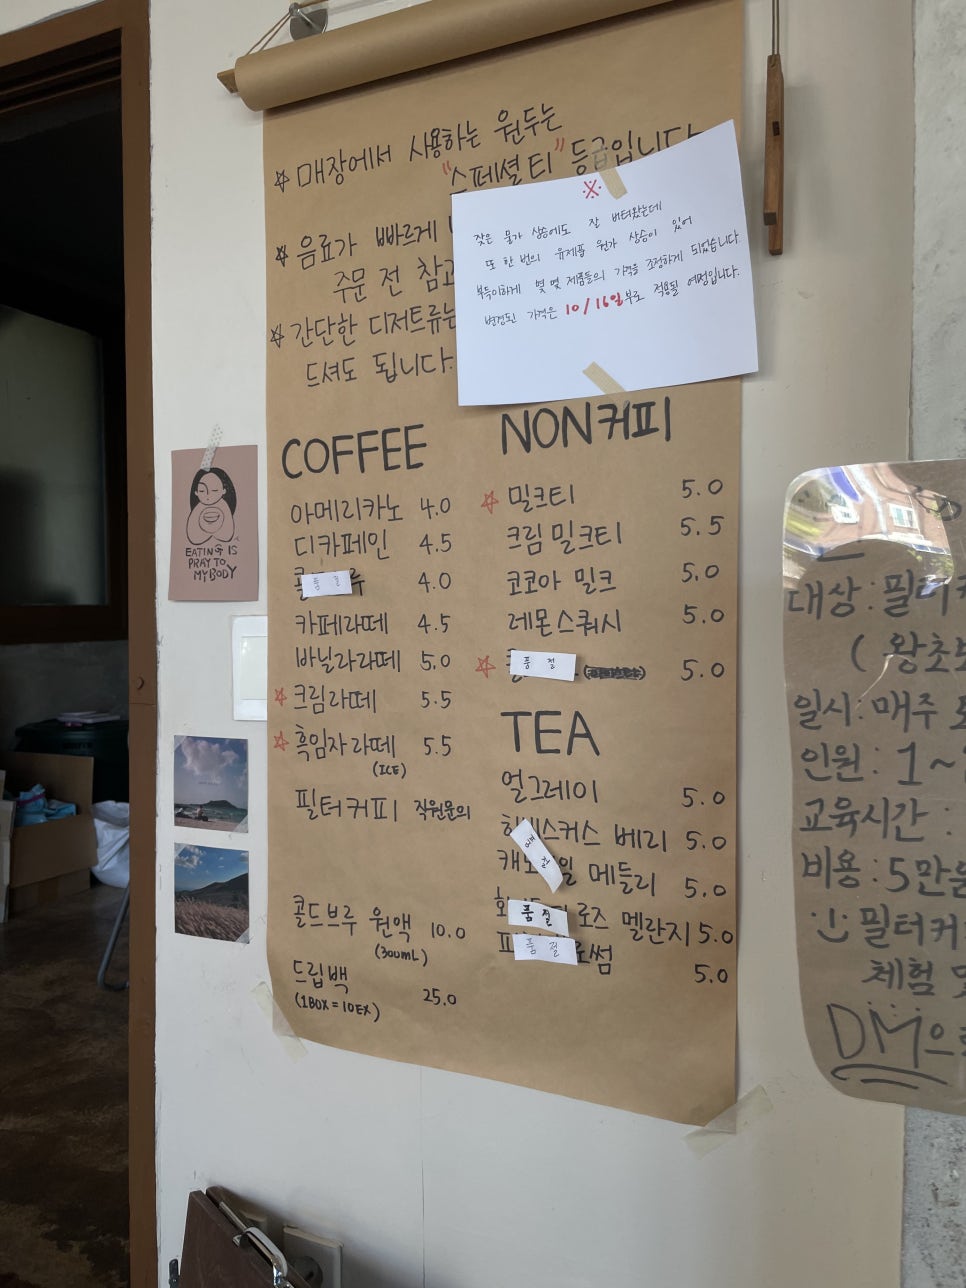 ☆ 매장에서 사용하는 원두는
"스페셜티" 등급입니다
☆ 음료가 빠르게
주문 전 참고
☆ 간단한 디저트류는
드셔도 됩니다.
※
잦은 물가 상승에도 잘 버텨왔는데
또 한 번의 유제품 원가 상승이 있어
부득이하게 몇몇 제품들의 가격을 조정하게 되었습니다.
변경된 가격은 10/16일부로 적용될 예정입니다.
COFFEE
아메리카노 4.0
디카페인 4.5
품절 4.0
카페라떼 4.5
바닐라라떼 5.0
☆ 크림라떼 5.5
☆ 흑임자라떼 5.5
(ICE)
필터커피 직원문의
콜드브루 원액 10.0
(300mL)
드립백 25.0
(1BOX=10EX)
NON커피
☆ 밀크티 5.0
크림 밀크티 5.5
코코아 밀크 5.0
레몬스쿼시 5.0
☆ 품절 5.0
TEA
얼그레이 5.0
베리 5.0
메들리 5.0
품절 로즈 멜란지 5.0
품절 썸 5.0
EATING IS
PRAY TO
MY BODY
대상: 필터
(왕초보
일시: 매주
인원: 1~
교육시간:
비용: 5만원
필터커
체험 및
DM으